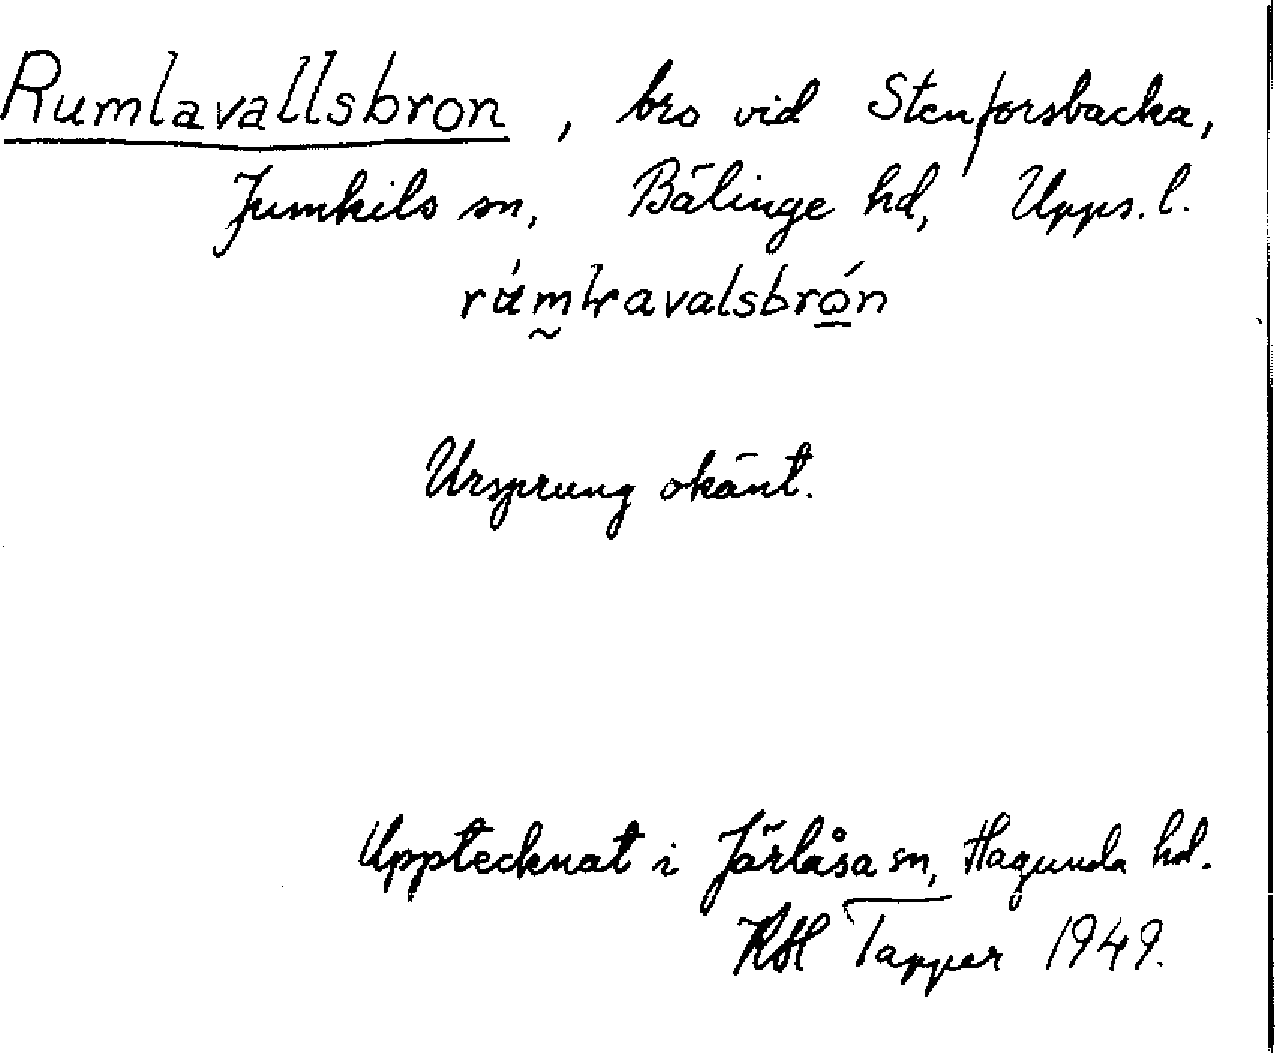 Rumlavallsbron, bro vid Stenforsbacka,
Jumkils sn, Bälinge hd, Upps. l.
Ursprung okänt.
Upptecknat i Järlåsa sn, Hagunda hd.
Tapper 1949.